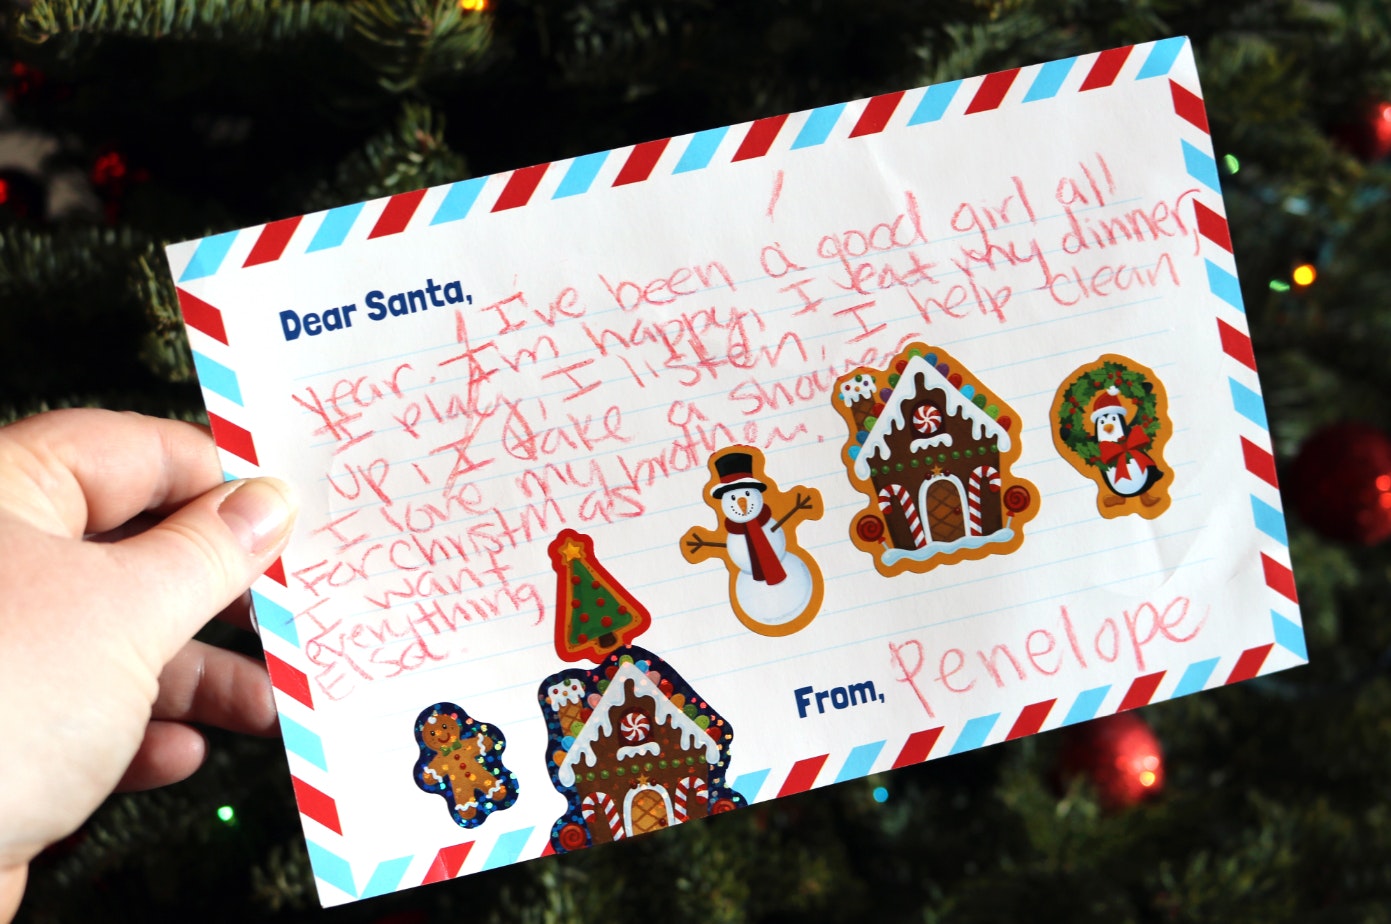 Dear Santa,
I've been a good girl all
year. I'm happy, I eat my dinner,
I play, I listen, I help clean
up, I take a shower
I love my brother.
For christmas
I want
everything
Elsa.
From, Penelope